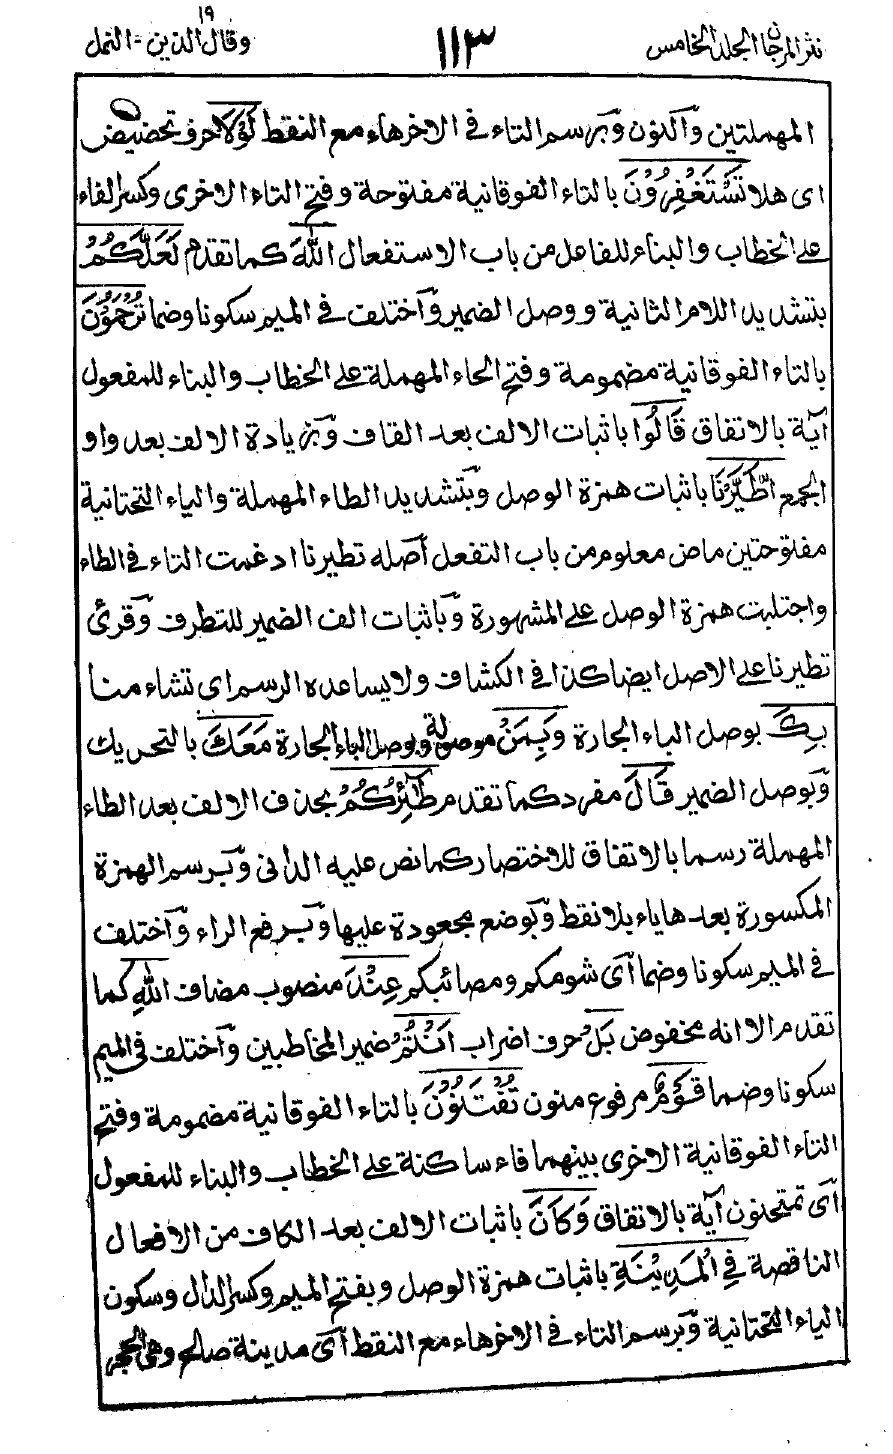 نثر المرجان الجلد الخامس
١١٣
١٩
وقال الذين - النمل
المهملتين وَالنون وَبرسم التاء فى الاخر هاء مع النقط لَوْلَا حرف تحضيض
اى هلا تَسْتَغْفِرُوْنَ بالتاء الفوقانية مفتوحة وفتح التاء الاخرى وكسر الفاء
على الخطاب والبناء للفاعل من باب الاستفعال اللّٰهَ كما تقدم لَعَلَّكُمْ
بتشديد اللام الثانية ووصل الضمير وَاختلف فى الميم سكونا وضما تُرْحَمُوْنَ
بالتاء الفوقانية مضمومة وفتح الحاء المهملة على الخطاب والبناء للمفعول
آية بالاتفاق قَالُوا باثبات الالف بعد القاف وَبزيادة الالف بعد واو
الجمع اطَّيَّرْنَا باثبات همزة الوصل وَبتشديد الطاء المهملة والياء التحتانية
مفتوحتين ماض معلوم من باب التفعل اَصله تطيرنا ادغمت التاء فى الطاء
واجتلبت همزة الوصل على المشهورة وَباثبات الف الضمير للتطرف وَقرئ
تطيرنا على الاصل ايضا كذا فى الكشاف ولا يساعده الرسم اى تشاء منا
بِكَ بوصل الباء الجارة وَبِمَنْ موصولة وبوصل الباء الجارة مَعَكَ بالتحريك
وَبوصل الضمير قَالَ مفرد كما تقدم طٰٓئِرُكُمْ بحذف الالف بعد الطاء
المهملة رسما بالاتفاق للاختصار كما نص عليه الدانى وَبرسم الهمزة
المكسورة بعدها ياء بلا نقط وَبوضع مجعودة عليها وَبرفع الراء وَاختلف
فى الميم سكونا وضما اَى شومكم ومصائبكم عِنْدَ منصوب مضاف اللّٰهِ كما
تقدم الا انه مخفوض بَلْ حرف اضراب اَنْتُمْ ضمير المخاطبين وَاختلف فى الميم
سكونا وضما قَوْمٌ مرفوع منون تُفْتَنُوْنَ بالتاء الفوقانية مضمومة وفتح
التاء الفوقانية الاخرى بينهما فاء ساكنة على الخطاب والبناء للمفعول
اَى تمتحنون آية بالاتفاق وَكَانَ باثبات الالف بعد الكاف من الافعال
الناقصة فِي الْمَدِيْنَةِ باثبات همزة الوصل وبفتح الميم وكسر الدال وسكون
الياء التحتانية وَبرسم التاء فى الاخر هاء مع النقط اَى مدينة صالح وهى الحجر